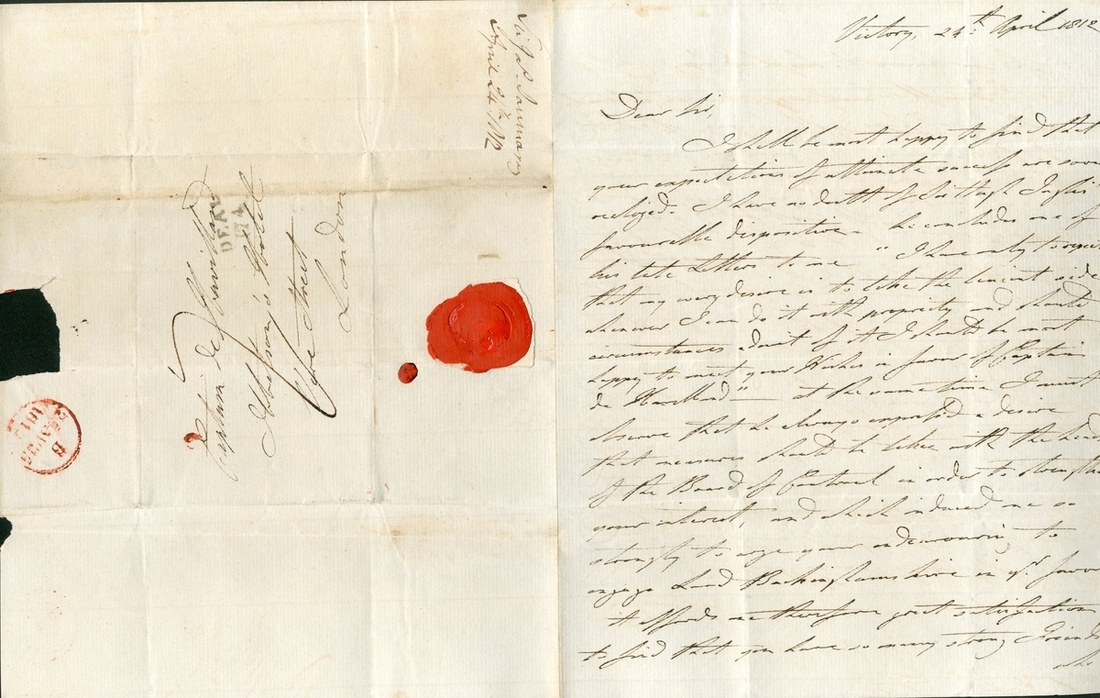 Sir Jas. Saumarez
April 24th. 1812
DEAL
74
Captain de Havilland
Ibbetson's Hotel
Vere Street
London
B
1812
Victory, 24th. April 1812
Dear Sir,
I shall be most happy to find that
your expectations of ultimate success are soon
realized. I have no doubt of Sir Hugh Inglis'
favourable disposition - he concludes one of
his late Letters to me "I have only to repeat
that my every desire is to take the lenient side
whenever I can do it with propriety and should
circumstances admit of it I should be most
happy to meet your Wishes in favour of Captain
de Havilland" — at the same time I must
observe that he always expressed a desire
that measures should be taken with the head
of the Board of Controul in order to strengthen
your interest, and which induced me so
strongly to urge your endeavouring to
engage Lord Buckinghamshire in yr. favour
it affords me therefore great satisfaction
to find that you have so many strong Friends
who